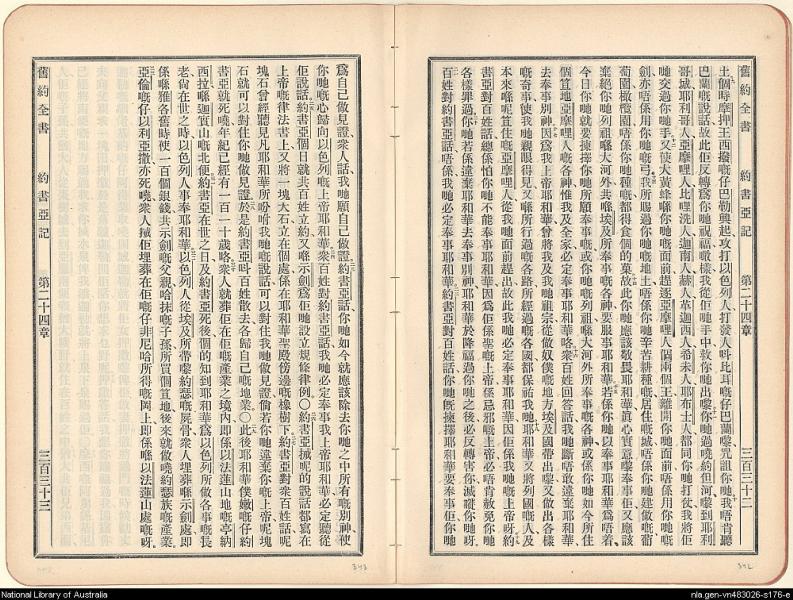 舊約全書 約書亞記 第二十四章 三百三十二
土個時摩押王西撥嘅仔巴勒興起攻打以色列人打發人呌比耳嘅仔巴蘭嚟咒詛你哋我唔肯聽
巴蘭嘅說話故此佢反轉為你哋祝福噉樣我從佢手中救你哋出嚟你哋過曉約但河嚟到耶利
哥城耶利哥人亞摩哩人比哩洗人迦南人赫人革迦西人希未人耶布士人都同你哋打仗我將佢
哋交過你哋手又使大黃蜂喺你哋嘅面前趕逐亞摩哩人個兩個王離開你哋面前唔係用你哋嘅
劍亦唔係用你哋嘅弓我所賜過你哋嘅地土唔係你哋辛苦耕種嘅居住嘅城唔係你哋建做嘅葡
萄園橄欖園唔係你哋種嘅都得食個的菓故此你哋應該敬畏耶和華眞心實意嚟奉事佢又應該
棄絕你哋列祖喺大河外共喺埃及所奉事嘅各神要服事耶和華若係你哋以奉事耶和華為唔着
今日你哋就要揀擇你哋所願奉事嘅或你哋嘅列祖喺大河外所奉事嘅各神或係你哋如今所住
個笪地亞摩哩人嘅各神惟我及全家必定奉事耶和華咯衆百姓回答話我哋斷唔敢違棄耶和華
去奉事別神因為我上帝耶和華曾將我及我哋祖宗從做奴僕嘅地方埃及國帶出嚟又做出各樣
嘅奇事使我哋親眼得見又喺所行過嘅各路所經過嘅各國都保祐我哋耶和華又將列國嘅人及
本來喺呢笪住嘅亞摩哩人從我哋面前趕出故此我哋必定奉事耶和華因佢係我哋嘅上帝呀約
書亞對百姓話總係怕你哋不能奉事耶和華因為佢係聖嘅上帝係忌邪嘅上帝必唔肯赦免你哋
各樣罪過你哋若係違棄耶和華去奉事別神耶和華於降福過你哋之後必反轉害你滅你哋呀
百姓對約書亞話唔係我必定奉事耶和華約書亞對百姓話你哋旣揀擇耶和華要奉事佢你哋
為自己做見證衆人話我哋願自己做證約書亞話你哋如今就應該除去你哋之中所有嘅別神使
你哋嘅心歸向以色列嘅上帝耶和華衆百姓對約書亞話我哋必定奉事我上帝耶和華必定聽從
佢說話約書亞個日就共百姓立約又喺示劍為佢哋設立規條律例〇約書亞㨢呢的說話都寫在
上帝嘅律法書上又將一塊大石立在個處係在耶和華聖殿傍邊嘅橡樹下約書亞對衆百姓話呢
塊石曾經聽見凡耶和華所吩咐我哋嘅說話可以對住我哋做見證倘若你哋違棄你嘅上帝呢塊
石就可以對住你哋做見證於是約書亞呌百姓散去各歸自己嘅地業〇此後耶和華僕嫩嘅仔約
書亞就死嘵年紀已經有一百一十歲咯衆人就葬佢在佢嘅產業之境內即係以法蓮山地嘅亭納
西拉喺迦實山嘅北便約書亞在世之日及約書亞死後個的知到耶和華為以色列所做各事嘅長
老尙在世之時以色列人事奉耶和華以色列人從埃及所帶嚟約瑟嘅屍骨衆人埋葬喺示劍處即
係喺雅各舊時使一百個銀錢共示劍嘅父親哈抹嘅子孫所買個笪地後來就做嘵約瑟族嘅產業
亞倫嘅仔以利亞撒亦死嘵衆人㨢佢埋葬在佢嘅仔非尼哈所得嘅岡上即係喺以法蓮山處嘅呀
舊約全書 約書亞記 第二十四章 三百三十三
342
343
National Library of Australia
nla.gen-vn483026-s176-e